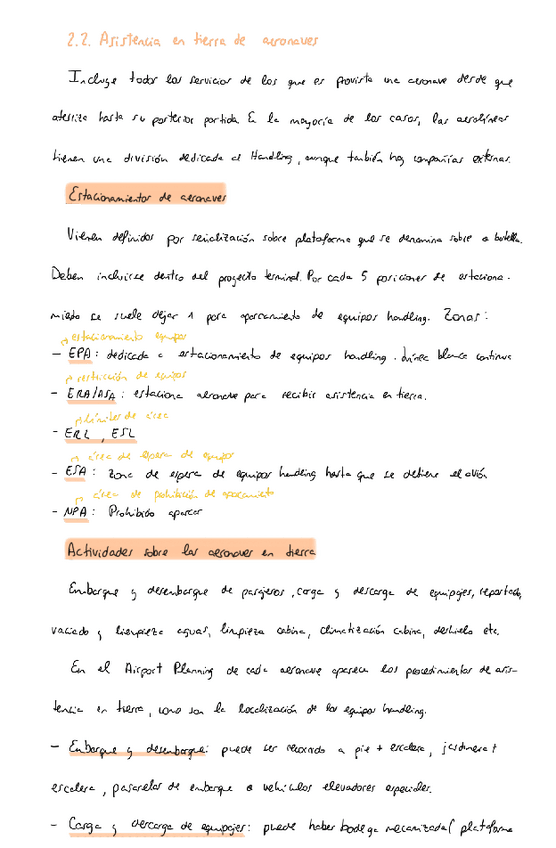 2.2. Asistencia en tierra de aeronaves
Incluye todos los servicios de los que es provista una aeronave desde que
aterriza hasta su posterior partida. En la mayoría de los casos, las aerolíneas
tienen una división dedicada al Handling, aunque también hay compañías externas.
Estacionamientos de aeronaves
Vienen definidos por señalización sobre plataforma que se denomina sobre o botella.
Deben incluirse dentro del proyecto terminal. Por cada 5 posiciones de estaciona-
miento se suele dejar 1 para aparcamiento de equipos handling. Zonas:
estacionamiento equipos
- EPA: dedicada a estacionamiento de equipos handling. Línea blanca continua
restricción de equipos
- ERA/ASA: estaciona aeronave para recibir asistencia en tierra.
límites de área
- ERL, ESL
área de espera de equipos
- ESA: zona de espera de equipos handling hasta que se detiene el avión
área de prohibición de aparcamiento
- NPA: Prohibido aparcar
Actividades sobre las aeronaves en tierra
Embarque y desembarque de pasajeros, carga y descarga de equipajes, repostado,
vaciado y limpieza aguas, limpieza cabina, climatización cabina, deshielo etc.
En el Airport Planning de cada aeronave aparecen los procedimientos de asis-
tencia en tierra, como son la localización de los equipos handling.
- Embarque y desembarque: puede ser recorrido a pie + escalera, jardinera +
escalera, pasarelas de embarque o vehículos elevadores especiales.
- Carga y descarga de equipajes: puede haber bodega mecanizada (plataforma